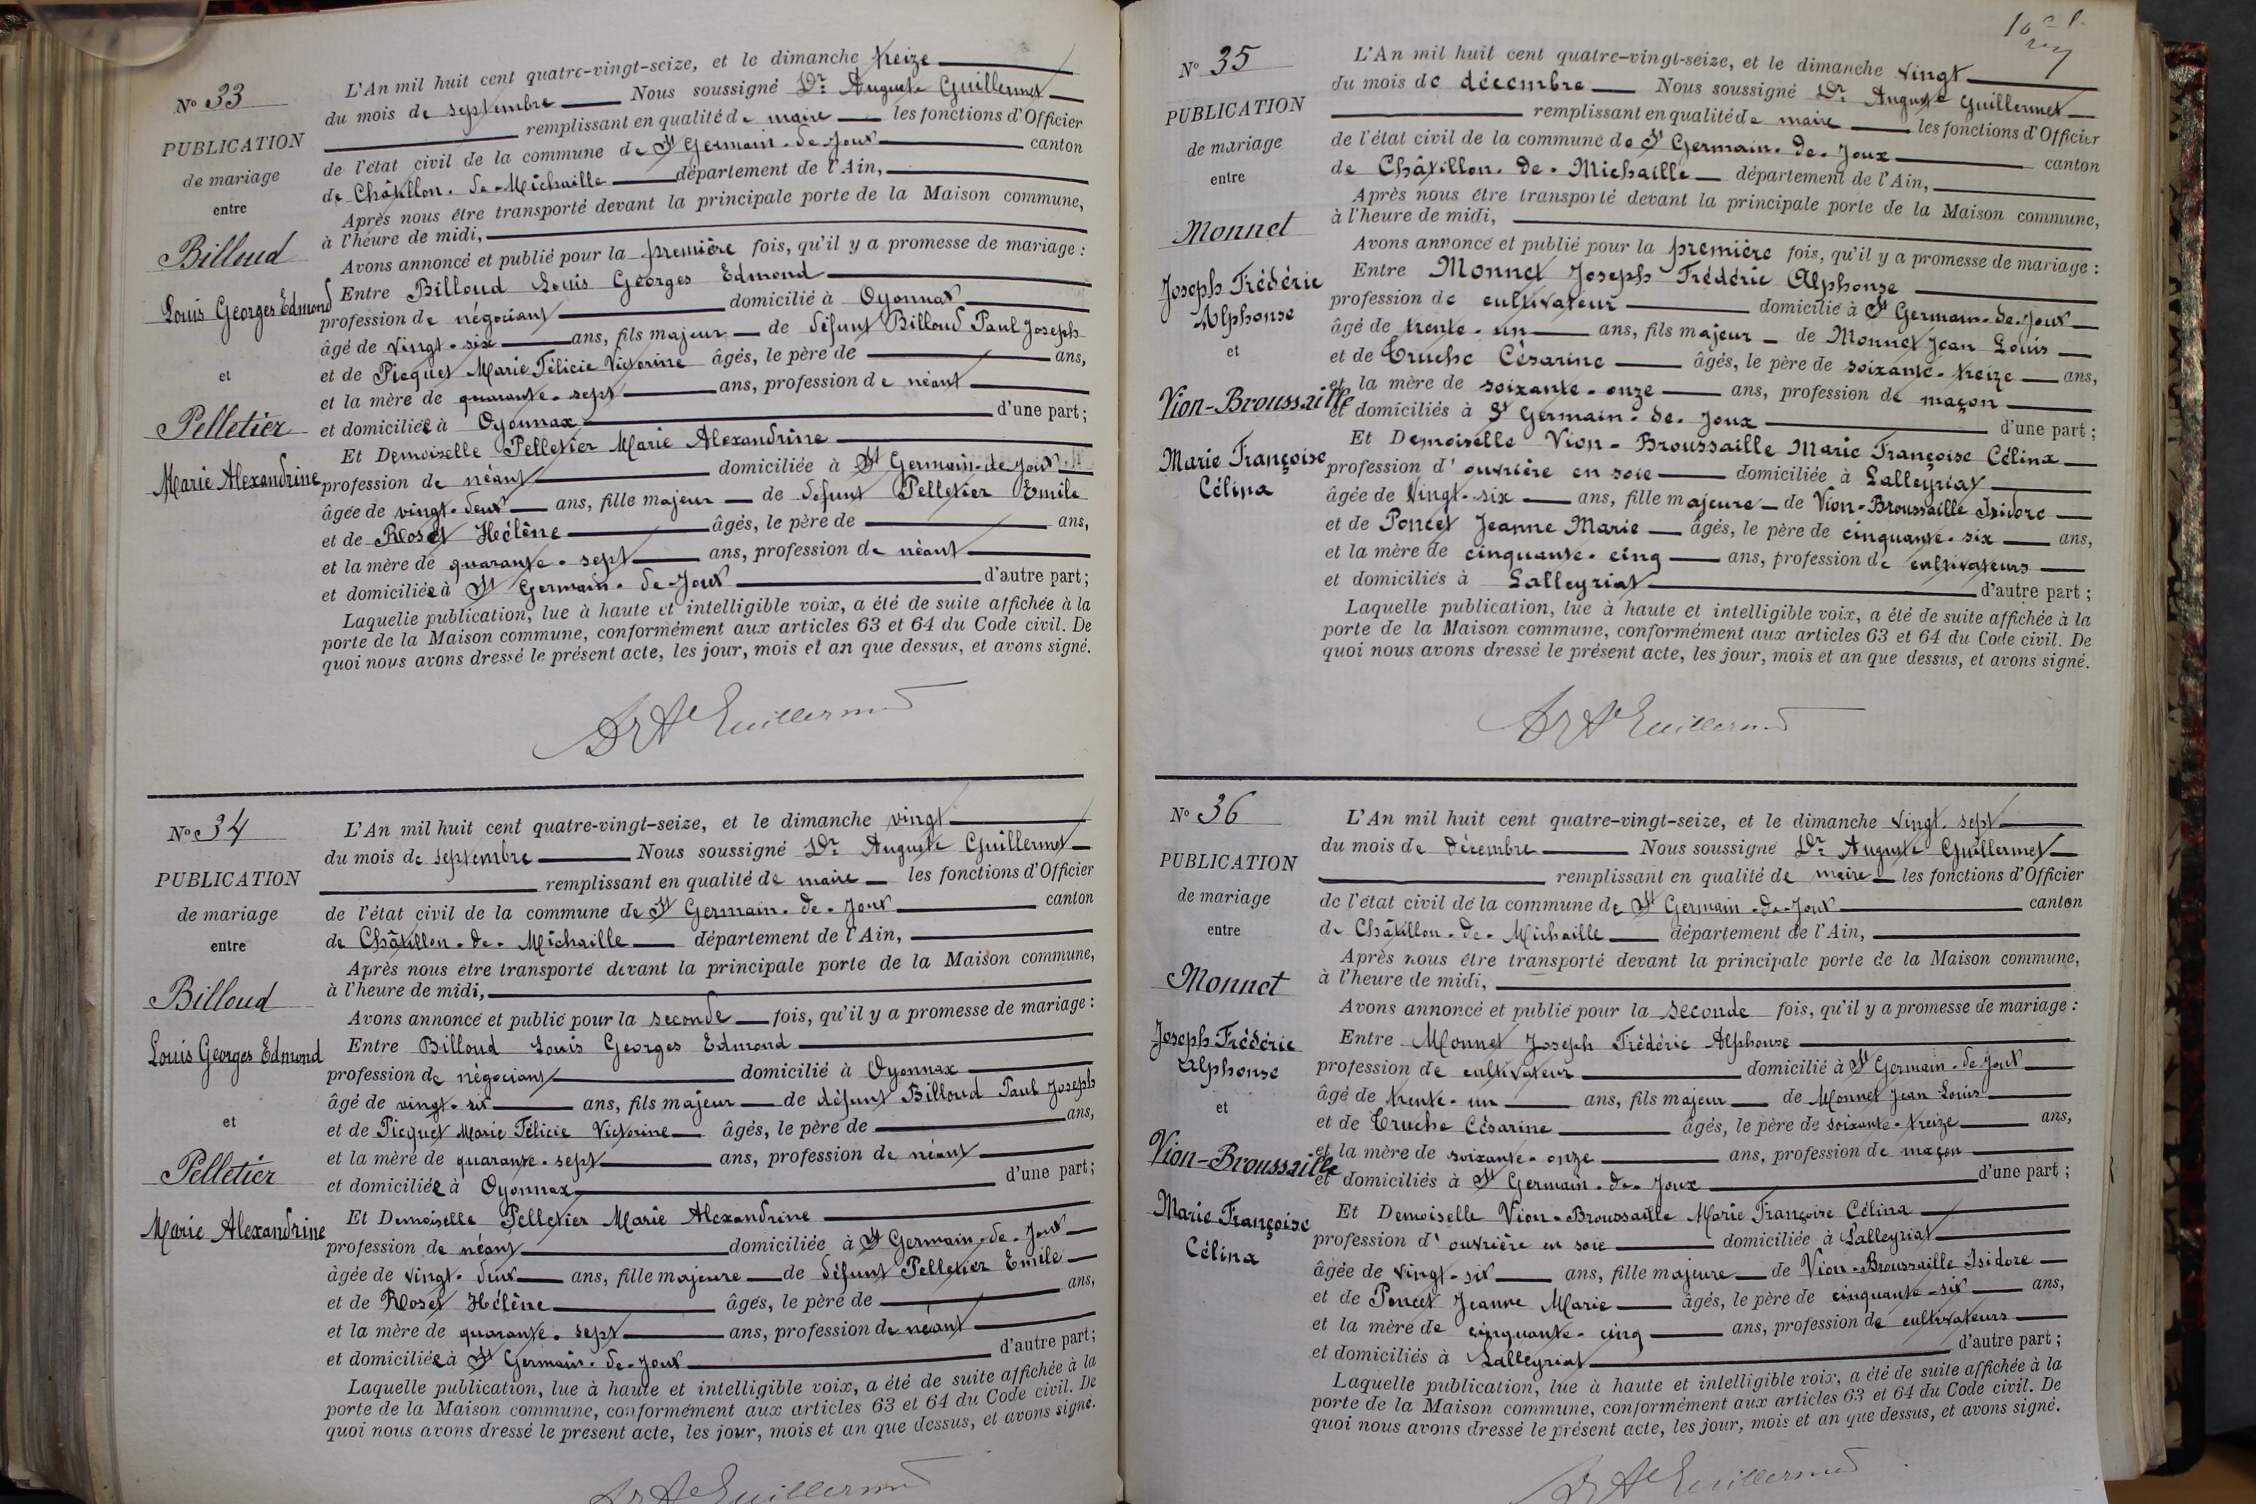 No 33
PUBLICATION
de mariage
entre
Billoud
Louis Georges Edmond
et
Pelletier
Marie Alexandrine
L'An mil huit cent quatre-vingt-seize, et le dimanche treize
du mois de septembre Nous soussigné Dr Auguste Guillermet
remplissant en qualité de maire les fonctions d'Officier
de l'état civil de la commune de St Germain-de-Joux canton
de Châtillon-de-Michaille département de l'Ain,
Après nous être transporté devant la principale porte de la Maison commune,
à l'heure de midi,
Avons annoncé et publié pour la première fois, qu'il y a promesse de mariage :
Entre Billoud Louis Georges Edmond
profession de négociant domicilié à Oyonnax
âgé de vingt-six ans, fils majeur de défunt Billoud Paul Joseph
et de Picquet Marie Félicie Victorine âgés, le père de ans,
et la mère de quarante-sept ans, profession de néant
et domiciliée à Oyonnax d'une part ;
Et Demoiselle Pelletier Marie Alexandrine
profession de néant domiciliée à St Germain-de-Joux
âgée de vingt-deux ans, fille majeur de défunt Pelletier Emile
et de Rloset Hélène âgés, le père de ans,
et la mère de quarante-sept ans, profession de néant
et domiciliée à St Germain-de-Joux d'autre part ;
Laquelle publication, lue à haute et intelligible voix, a été de suite affichée à la
porte de la Maison commune, conformément aux articles 63 et 64 du Code civil. De
quoi nous avons dressé le présent acte, les jour, mois et an que dessus, et avons signé.
Dr Ate Guillermet
No 34
PUBLICATION
de mariage
entre
Billoud
Louis Georges Edmond
et
Pelletier
Marie Alexandrine
L'An mil huit cent quatre-vingt-seize, et le dimanche vingt
du mois de septembre Nous soussigné Dr Auguste Guillermet
remplissant en qualité de maire les fonctions d'Officier
de l'état civil de la commune de St Germain-de-Joux canton
de Châtillon-de-Michaille département de l'Ain,
Après nous être transporté devant la principale porte de la Maison commune,
à l'heure de midi,
Avons annoncé et publié pour la seconde fois, qu'il y a promesse de mariage :
Entre Billoud Louis Georges Edmond
profession de négociant domicilié à Oyonnax
âgé de vingt-six ans, fils majeur de défunt Billoud Paul Joseph
et de Picquet Marie Félicie Victorine âgés, le père de ans,
et la mère de quarante-sept ans, profession de néant
et domiciliée à Oyonnax d'une part ;
Et Demoiselle Pelletier Marie Alexandrine
profession de néant domiciliée à St Germain-de-Joux
âgée de vingt-deux ans, fille majeure de défunt Pelletier Emile
et de Rloset Hélène âgés, le père de ans,
et la mère de quarante-sept ans, profession de néant
et domiciliée à St Germain-de-Joux d'autre part ;
Laquelle publication, lue à haute et intelligible voix, a été de suite affichée à la
porte de la Maison commune, conformément aux articles 63 et 64 du Code civil. De
quoi nous avons dressé le présent acte, les jour, mois et an que dessus, et avons signé.
Dr Ate Guillermet
No 35
PUBLICATION
de mariage
entre
Monnet
Joseph Frédéric
Alphonse
et
Vion-Broussaille
Marie Françoise
Célina
L'An mil huit cent quatre-vingt-seize, et le dimanche vingt
du mois de décembre Nous soussigné Dr Auguste Guillermet
remplissant en qualité de maire les fonctions d'Officier
de l'état civil de la commune de St Germain-de-Joux canton
de Châtillon-de-Michaille département de l'Ain,
Après nous être transporté devant la principale porte de la Maison commune,
à l'heure de midi,
Avons annoncé et publié pour la première fois, qu'il y a promesse de mariage :
Entre Monnet Joseph Frédéric Alphonse
profession de cultivateur domicilié à St Germain-de-Joux
âgé de trente-un ans, fils majeur de Monnet Jean Louis
et de Truche Césarine âgés, le père de soixante-treize ans,
et la mère de soixante-onze ans, profession de maçon
et domiciliés à St Germain-de-Joux d'une part ;
Et Demoiselle Vion-Broussaille Marie Françoise Célina
profession d'ouvrière en soie domiciliée à Lalleyriat
âgée de vingt-six ans, fille majeure de Vion-Broussaille Isidore
et de Poncet Jeanne Marie âgés, le père de cinquante-six ans,
et la mère de cinquante-cinq ans, profession de cultivateurs
et domiciliés à Lalleyriat d'autre part ;
Laquelle publication, lue à haute et intelligible voix, a été de suite affichée à la
porte de la Maison commune, conformément aux articles 63 et 64 du Code civil. De
quoi nous avons dressé le présent acte, les jour, mois et an que dessus, et avons signé.
Dr Ate Guillermet
No 36
PUBLICATION
de mariage
entre
Monnet
Joseph Frédéric
Alphonse
et
Vion-Broussaille
Marie Françoise
Célina
L'An mil huit cent quatre-vingt-seize, et le dimanche vingt-sept
du mois de décembre Nous soussigné Dr Auguste Guillermet
remplissant en qualité de maire les fonctions d'Officier
de l'état civil de la commune de St Germain-de-Joux canton
de Châtillon-de-Michaille département de l'Ain,
Après nous être transporté devant la principale porte de la Maison commune,
à l'heure de midi,
Avons annoncé et publié pour la seconde fois, qu'il y a promesse de mariage :
Entre Monnet Joseph Frédéric Alphonse
profession de cultivateur domicilié à St Germain-de-Joux
âgé de trente-un ans, fils majeur de Monnet Jean Louis
et de Truche Césarine âgés, le père de soixante-treize ans,
et la mère de soixante-onze ans, profession de maçon
et domiciliés à St Germain-de-Joux d'une part ;
Et Demoiselle Vion-Broussaille Marie Françoise Célina
profession d'ouvrière en soie domiciliée à Lalleyriat
âgée de vingt-six ans, fille majeure de Vion-Broussaille Isidore
et de Poncet Jeanne Marie âgés, le père de cinquante-six ans,
et la mère de cinquante-cinq ans, profession de cultivateurs
et domiciliés à Lalleyriat d'autre part ;
Laquelle publication, lue à haute et intelligible voix, a été de suite affichée à la
porte de la Maison commune, conformément aux articles 63 et 64 du Code civil. De
quoi nous avons dressé le présent acte, les jour, mois et an que dessus, et avons signé.
Dr Ate Guillermet